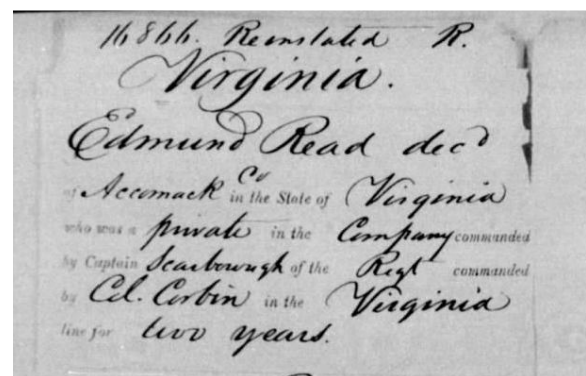 16866. Reinstated R.
Virginia.
Edmund Read decd
of Accomack Co in the State of Virginia
who was a private in the Company commanded
by Captain Scarborough of the Regt commanded
by Col. Corbin in the Virginia
line for two years.